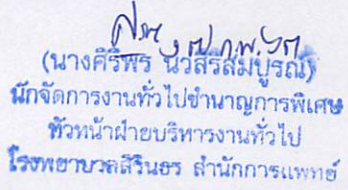 (นางศิริพร นิวสิริสมบูรณ์)
นักจัดการงานทั่วไปชำนาญการพิเศษ
หัวหน้าฝ่ายบริหารงานทั่วไป
โรงพยาบาลสิรินธร สำนักการแพทย์